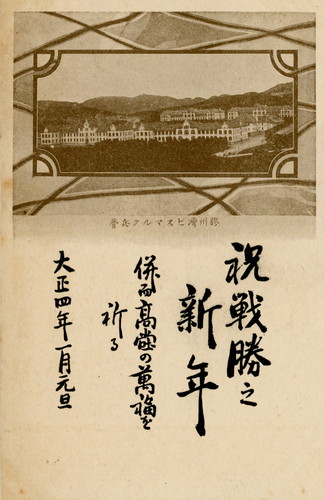 膠州灣ビスマルク兵營
祝戦勝之
新年
併而高堂の萬福を
祈る
大正四年一月元旦